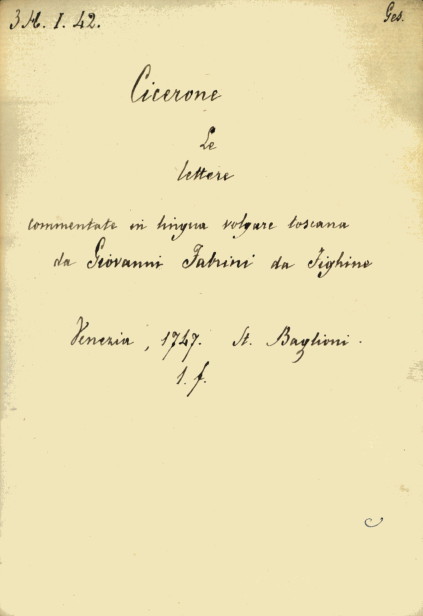 3 M. I. 42.
Ges.
Cicerone
Le
lettere
commentate in lingua volgare toscana
da Giovanni Fabrini da Fighine
Venezia, 1747. St. Baglioni.
1. f.